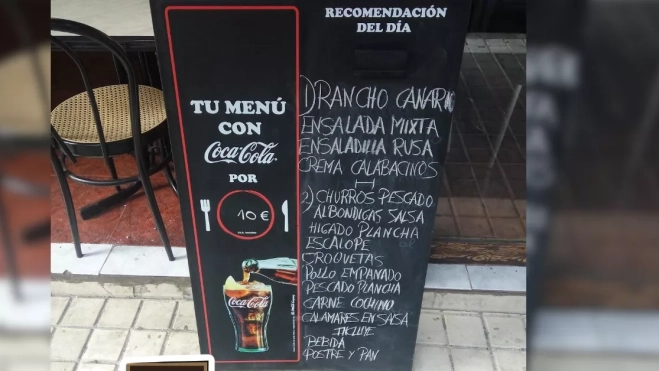 TU MENÚ
CON
Coca-Cola
POR
10 €
Coca-Cola
RECOMENDACIÓN
DEL DÍA
1) RANCHO CANARIO
ENSALADA MIXTA
ENSALADILLA RUSA
CREMA CALABACINOS
2) CHURROS PESCADO
ALBONDIGAS SALSA
HIGADO PLANCHA
ESCALOPE
CROQUETAS
POLLO EMPANADO
PESCADO PLANCHA
CARNE COCHINO
CALAMARES EN SALSA
INCLUYE
BEBIDA
POSTRE Y PAN